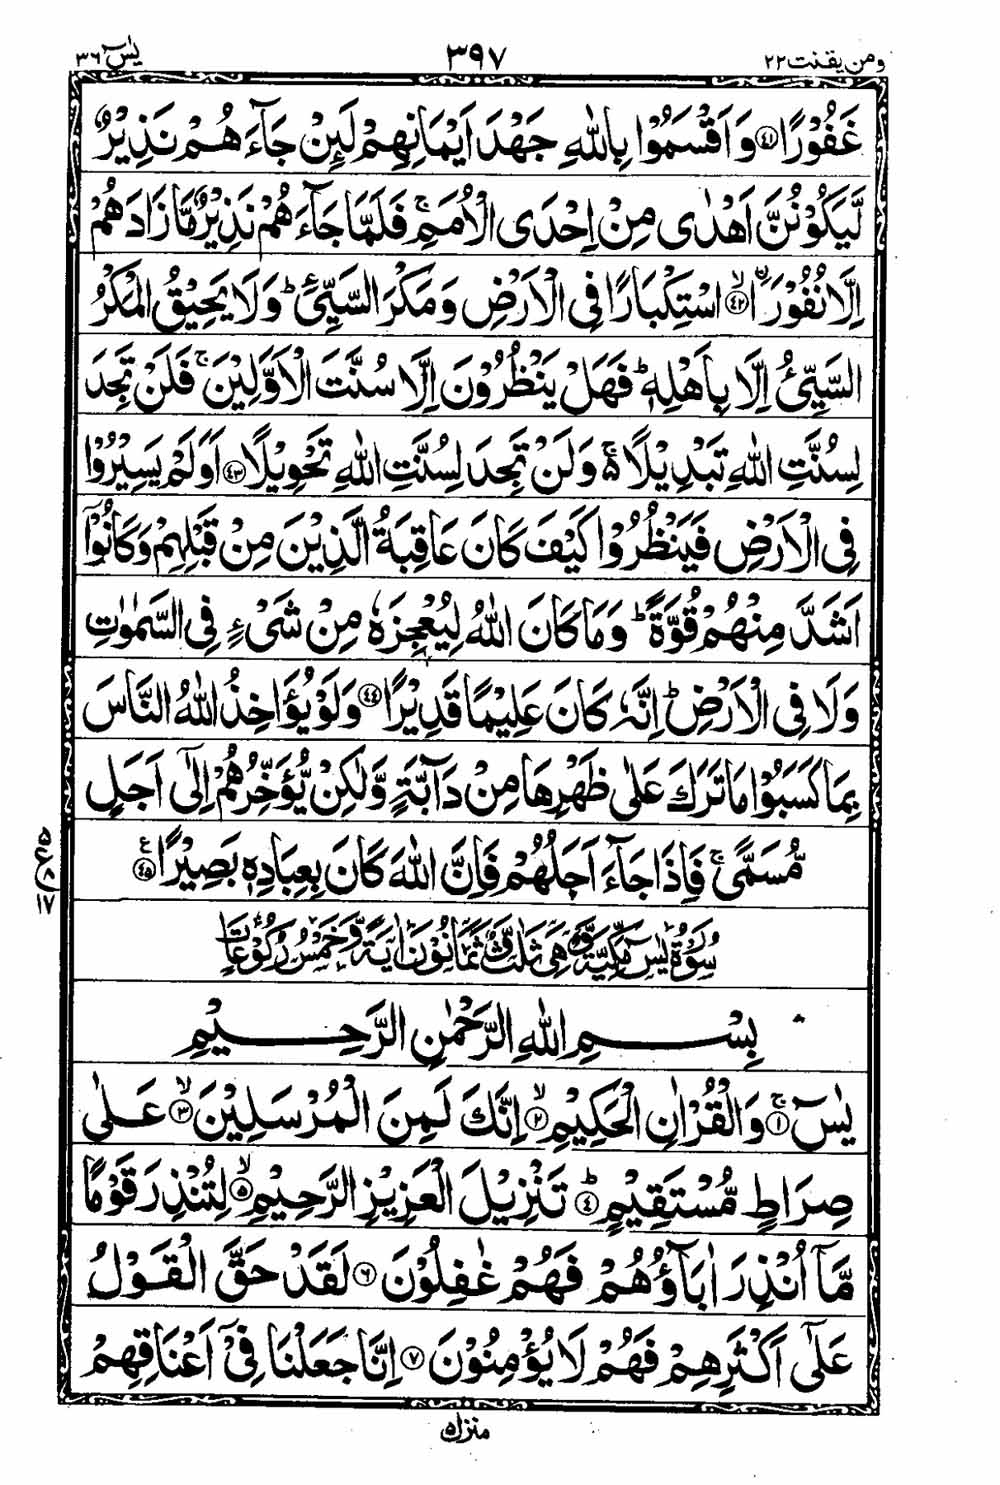 ومن يقنت ٢٢ ٣٩٧ يٰسٓ ٣٦
غَفُوْرًا ﴿٤١﴾ وَاَقْسَمُوْا بِاللّٰهِ جَهْدَ اَيْمَانِهِمْ لَئِنْ جَآءَهُمْ نَذِيْرٌ
لَّيَكُوْنُنَّ اَهْدٰى مِنْ اِحْدَى الْاُمَمِ ۚ فَلَمَّا جَآءَهُمْ نَذِيْرٌ مَّا زَادَهُمْ
اِلَّا نُفُوْرَا ۙ﴿٤٢﴾ اسْتِكْبَارًا فِى الْاَرْضِ وَمَكْرَ السَّيِّئِ ؕ وَلَا يَحِيْقُ الْمَكْرُ
السَّيِّئُ اِلَّا بِاَهْلِهٖ ؕ فَهَلْ يَنْظُرُوْنَ اِلَّا سُنَّتَ الْاَوَّلِيْنَ ۚ فَلَنْ تَجِدَ
لِسُنَّتِ اللّٰهِ تَبْدِيْلًا ۬ۚ وَلَنْ تَجِدَ لِسُنَّتِ اللّٰهِ تَحْوِيْلًا ﴿٤٣﴾ اَوَلَمْ يَسِيْرُوْا
فِى الْاَرْضِ فَيَنْظُرُوْا كَيْفَ كَانَ عَاقِبَةُ الَّذِيْنَ مِنْ قَبْلِهِمْ وَكَانُوْٓا
اَشَدَّ مِنْهُمْ قُوَّةً ؕ وَمَا كَانَ اللّٰهُ لِيُعْجِزَهٗ مِنْ شَىْءٍ فِى السَّمٰوٰتِ
وَلَا فِى الْاَرْضِ ؕ اِنَّهٗ كَانَ عَلِيْمًا قَدِيْرًا ﴿٤٤﴾ وَلَوْ يُؤَاخِذُ اللّٰهُ النَّاسَ
بِمَا كَسَبُوْا مَا تَرَكَ عَلٰى ظَهْرِهَا مِنْ دَآبَّةٍ وَّلٰكِنْ يُّؤَخِّرُهُمْ اِلٰٓى اَجَلٍ
مُّسَمًّى ۚ فَاِذَا جَآءَ اَجَلُهُمْ فَاِنَّ اللّٰهَ كَانَ بِعِبَادِهٖ بَصِيْرًا ﴿٤٥﴾ ع
٥ ع ٨ ١٧
سُوْرَةُ يٰسٓ مَكِّيَّةٌ وَّهِىَ ثَلٰثٌ وَّثَمَانُوْنَ اٰيَةً وَّخَمْسُ رُكُوْعَاتٍ
بِسْمِ اللّٰهِ الرَّحْمٰنِ الرَّحِيْمِ
يٰسٓ ۚ﴿١﴾ وَالْقُرْاٰنِ الْحَكِيْمِ ۙ﴿٢﴾ اِنَّكَ لَمِنَ الْمُرْسَلِيْنَ ۙ﴿٣﴾ عَلٰى
صِرَاطٍ مُّسْتَقِيْمٍ ؕ﴿٤﴾ تَنْزِيْلَ الْعَزِيْزِ الرَّحِيْمِ ۙ﴿٥﴾ لِتُنْذِرَ قَوْمًا
مَّآ اُنْذِرَ اٰبَآؤُهُمْ فَهُمْ غٰفِلُوْنَ ﴿٦﴾ لَقَدْ حَقَّ الْقَوْلُ
عَلٰٓى اَكْثَرِهِمْ فَهُمْ لَا يُؤْمِنُوْنَ ﴿٧﴾ اِنَّا جَعَلْنَا فِىْٓ اَعْنَاقِهِمْ
منزل ٥